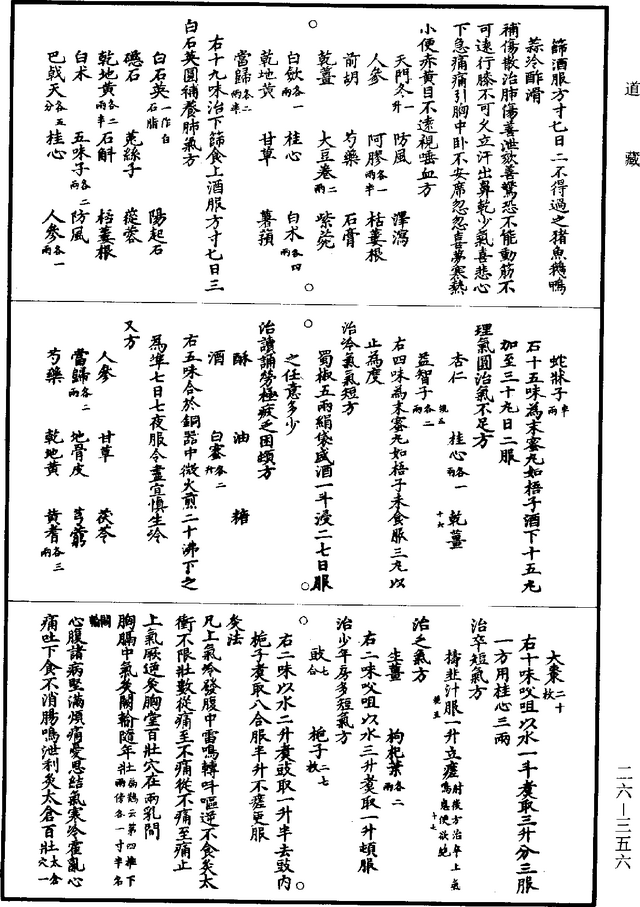 道藏
篩酒服方寸匕日二不得過之猪魚鵝鴨
蒜冷酢滑
補傷散治肺傷善泄欬善驚恐不能動筋不
可遠行膝不可久立汗出鼻乾少氣喜悲心
下急痛痛引胸中卧不安席忽忽喜夢寒熱
小便赤黄目不遠視唾血方
天門冬一升 防風 澤瀉
人參 阿膠各一兩半 栝蔞根
前胡 芍藥 石膏
乾薑 大豆卷各二兩 紫菀
白歛各一兩 桂心 白朮各四兩
乾地黄 甘草 薯蕷
當歸各二兩半
右十九味治下篩食上酒服方寸匕日三
白石英圓補養肺氣方
白石英一作白石脂 陽起石
磁石 菟絲子 蓯蓉
乾地黄各二兩半 石斛 栝蔞根
白朮 五味子各二兩 防風
巴戟天各五分 桂心 人參各一兩
蛇牀子半兩
石十五味為末蜜丸如梧子酒下十五丸
加至三十丸日二服
理氣圓治氣不足方
杏仁 桂心各一兩 乾薑
益智子各二兩
右四味為末蜜丸如梧子未食服三丸以
止為度
治冷氣氣短方
蜀椒五兩絹袋盛酒一斗浸二七日服
之任意多少
治讀誦勞極疲乏困頓方
酥 油 糖
酒 白蜜各二升
右五味合於銅器中微火煎二十沸下之
為準七日七夜服令盡宜慎生冷
又方
人參 甘草 茯苓
當歸各二兩 地骨皮 芎藭
芍藥 乾地黄 黄耆各三兩
大棗二十枚
右十味㕮咀以水一斗煑取三升分三服
一方用桂心三兩
治卒短氣方
擣韭汁服一升立瘥肘後方治卒上氣鳴息便欲絶
治乏氣方
生薑 枸杞葉各二兩
右二味㕮咀以水三升煑取一升頓服
治少年房多短氣方
豉七合 梔子二七枚
右二味以水二升煑豉取一升半去豉内
梔子煑取八合服半升不瘥更服
灸法
凡上氣冷發腹中雷鳴轉叫嘔逆不食灸太
衝不限壯數從痛至不痛從不痛至痛止
上氣厥逆灸胸堂百壯穴在兩乳間
胸膈中氣灸闕輸隨年壯扁鵲云第四椎下兩傍各一寸半名闕輸
心腹諸病堅滿煩痛憂思結氣寒冷霍亂心
痛吐下食不消腸鳴泄利灸太倉百壯太倉穴一
二六—三五六